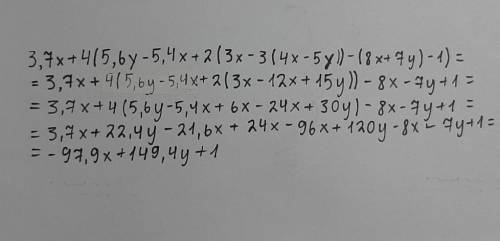 3,7x+4(5,6y-5,4x+2(3x-3(4x-5y))-(8x+7y)-1)=
=3,7x+4(5,6y-5,4x+2(3x-12x+15y))-8x-7y+1=
=3,7x+4(5,6y-5,4x+6x-24x+30y)-8x-7y+1=
=3,7x+22,4y-21,6x+24x-96x+120y-8x-7y+1=
=-97,9x+149,4y+1